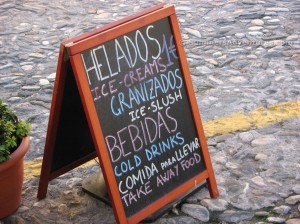 HELADOS 1€
ICE-CREAMS
GRANIZADOS
ICE-SLUSH
BEBIDAS
COLD DRINKS
COMIDA PARA LLEVAR
TAKE AWAY FOOD